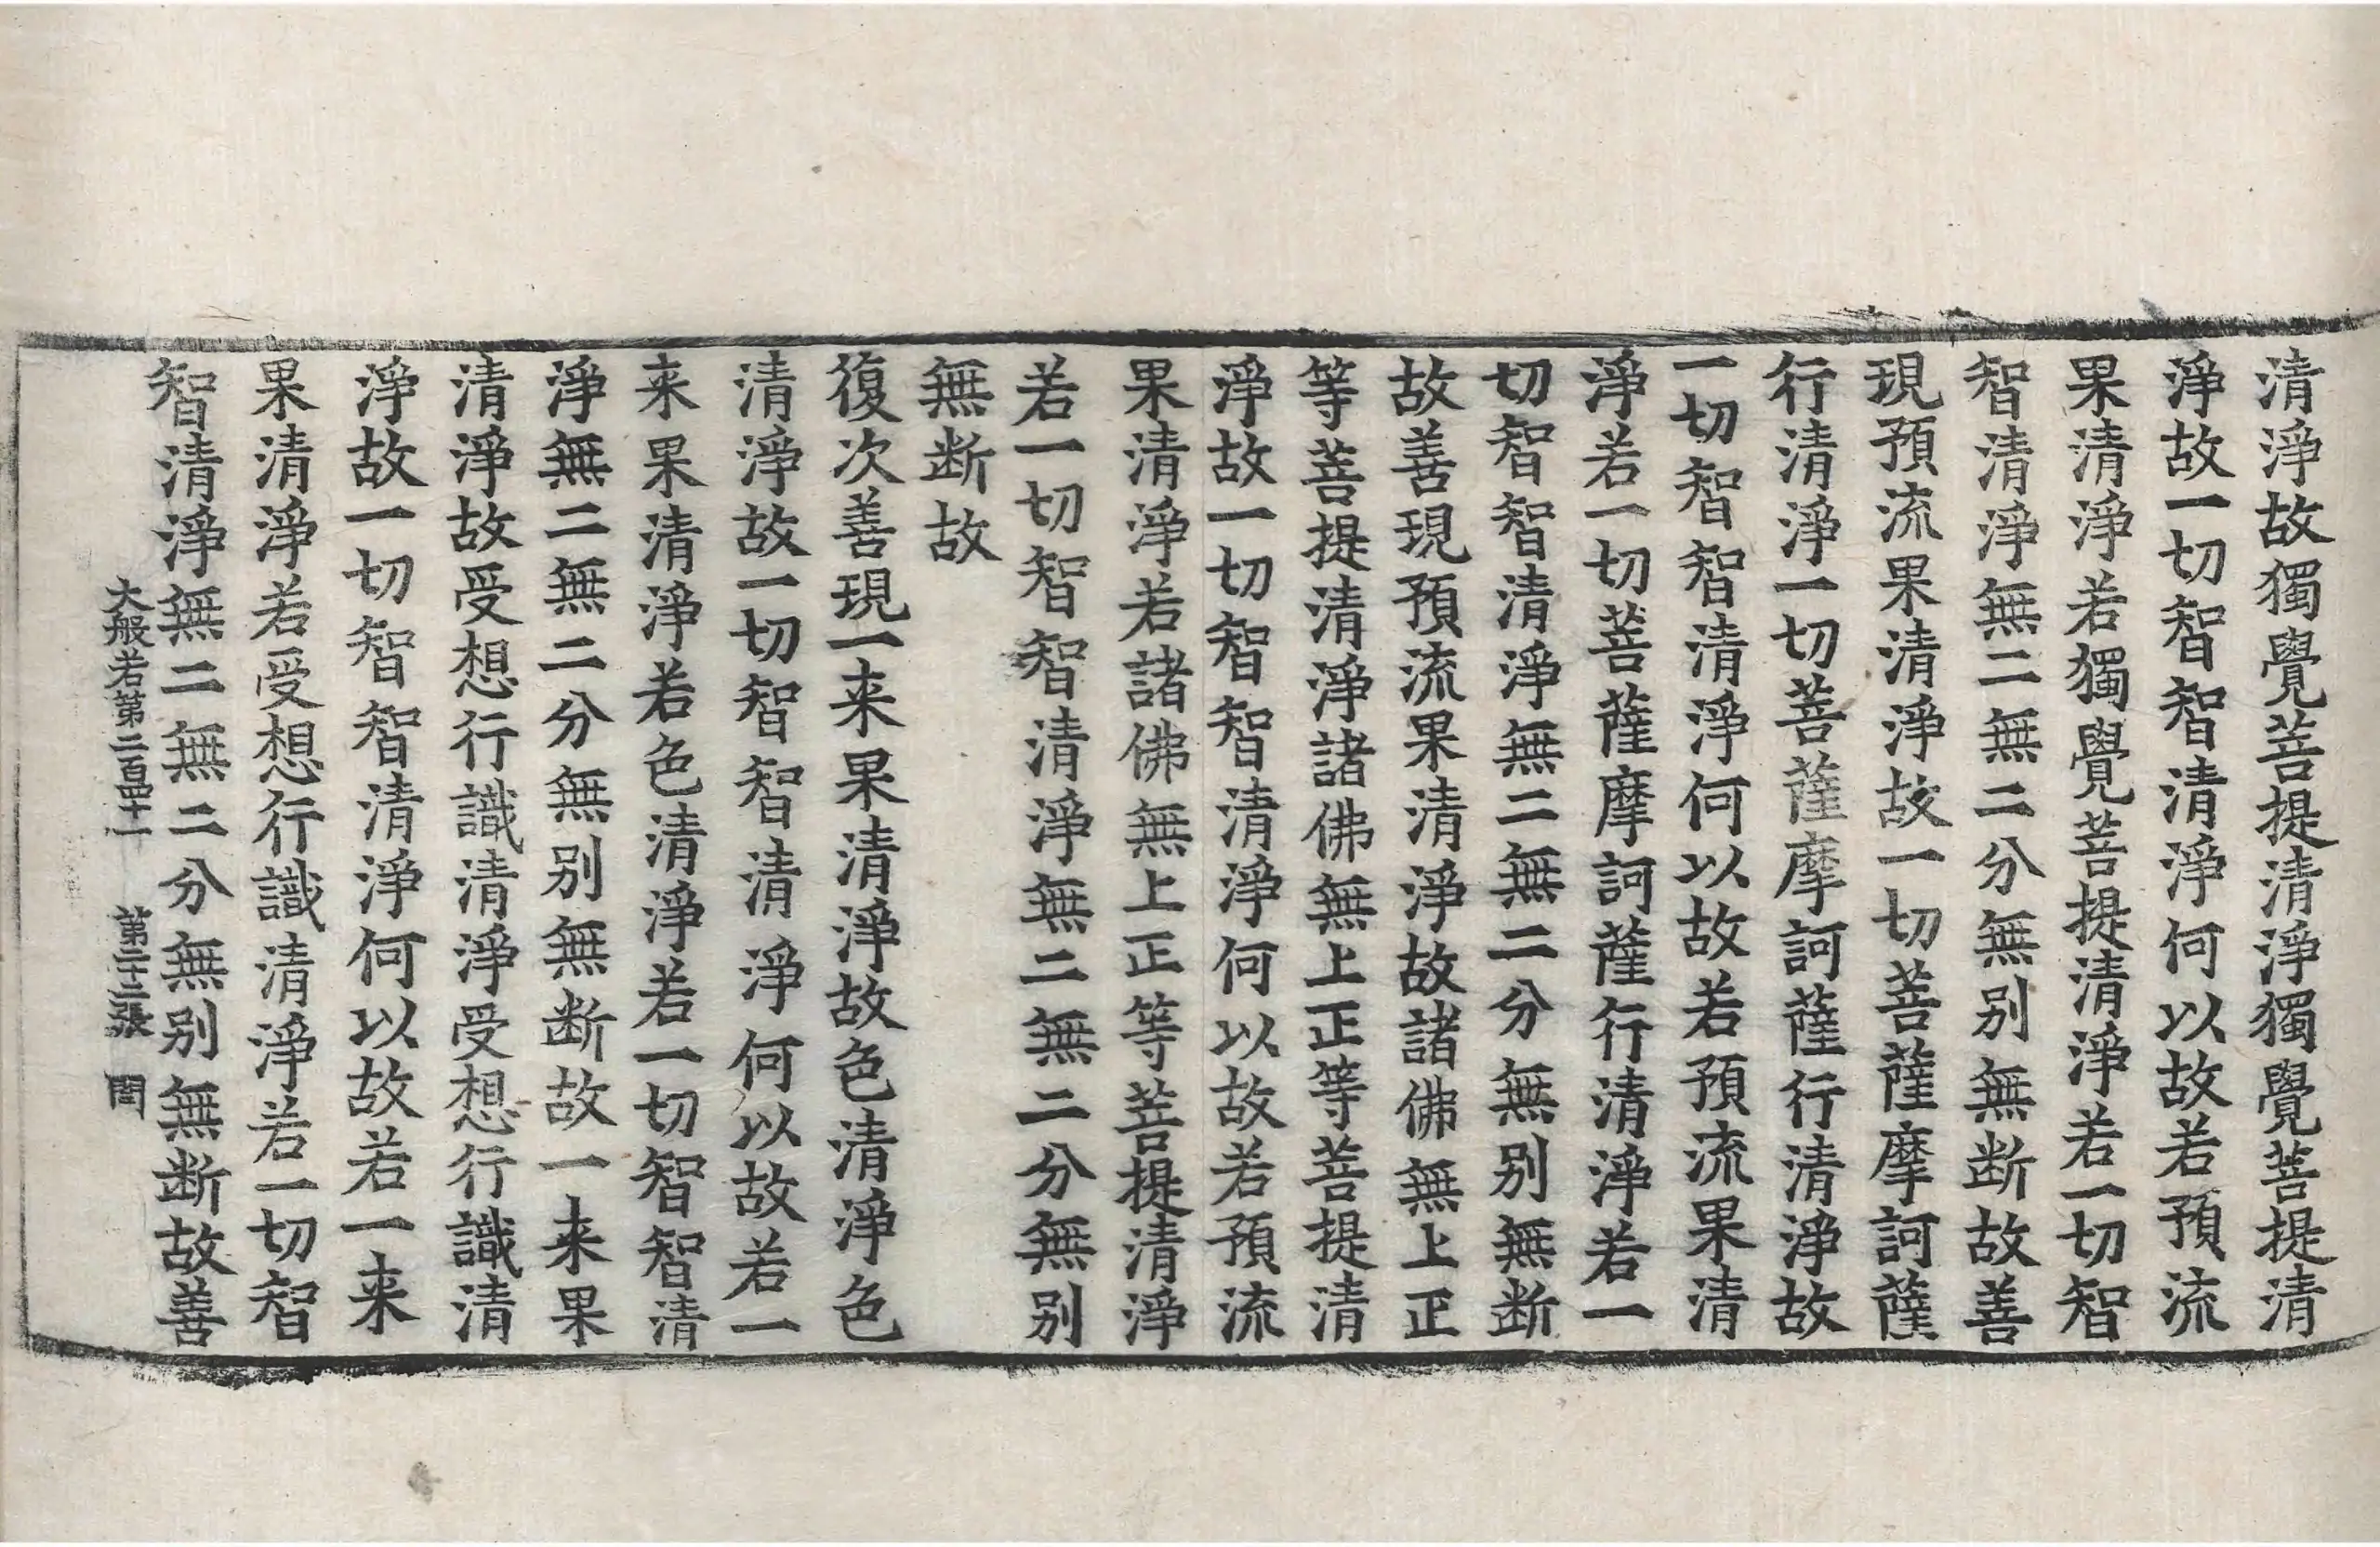 清淨故獨覺菩提清淨獨覺菩提清
淨故一切智智清淨何以故若預流
果清淨若獨覺菩提清淨若一切智
智清淨無二無二分無别無断故善
現預流果清淨故一切菩薩摩訶薩
行清淨一切菩薩摩訶薩行清淨故
一切智智清淨何以故若預流果清
淨若一切菩薩摩訶薩行清淨若一
切智智清淨無二無二分無别無断
故善現預流果清淨故諸佛無上正
等菩提清淨諸佛無上正等菩提清
淨故一切智智清淨何以故若預流
果清淨若諸佛無上正等菩提清淨
若一切智智清淨無二無二分無别
無断故
復次善現一来果清淨故色清淨色
清淨故一切智智清淨何以故若一
来果清淨若色清淨若一切智智清
淨無二無二分無别無断故一来果
清淨故受想行識清淨受想行識清
淨故一切智智清淨何以故若一来
果清淨若受想行識清淨若一切智
智清淨無二無二分無别無断故善
大般若第二百四十一 第二十二張 閏